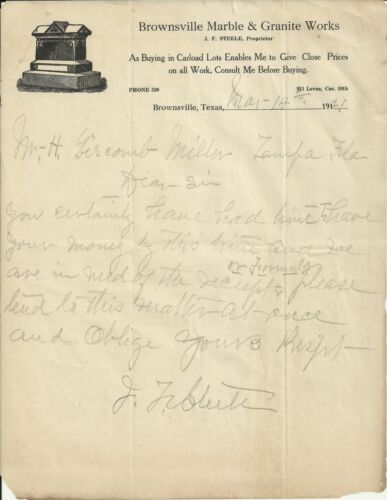 Brownsville Marble & Granite Works
J. F. STEELE, Proprietor
As Buying in Carload Lots Enables Me to Give Close Prices
on all Work, Consult Me Before Buying.
PHONE 539 811 Levee, Cor. 10th
Brownsville, Texas, Mar-14th 1921
Mr. H. Giscomb Miller Tampa Fla
Dear Sir
You certainly have had time to have
your money by this time and we
or Formula
are in need of the receipt please
tend to this matter at once
and Oblige Yours Respt
J. F. Steele